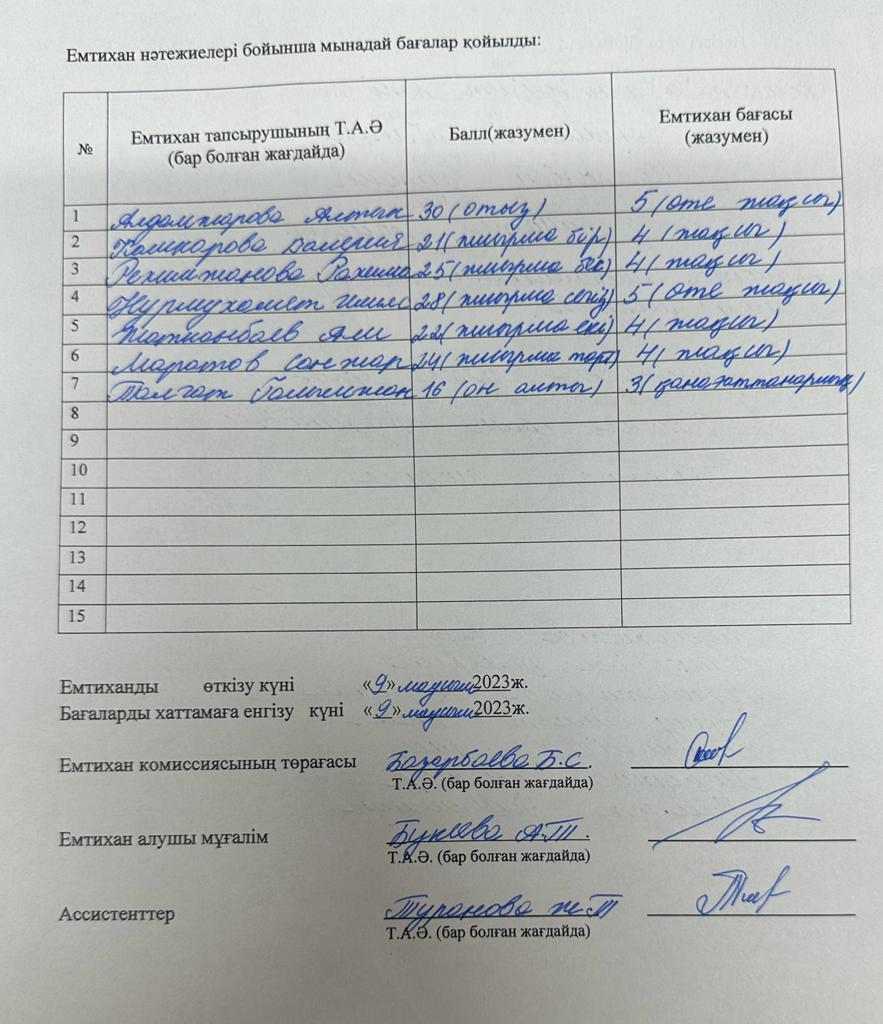 Емтихан нәтежиелері бойынша мынадай бағалар қойылды:
№ Емтихан тапсырушының Т.А.Ә (бар болған жағдайда) Балл(жазумен) Емтихан бағасы (жазумен)
1 Алдамжарова Алтын 30 (отыз) 5 (өте жақсы)
2 Камкарова Валерия 21 (жиырма бір) 4 (жақсы)
3 Рехимжанова Рахима 25 (жиырма бес) 4 (жақсы)
4 Нурмухамет 28 (жиырма сегіз) 5 (өте жақсы)
5 Жатканбаев Али 22 (жиырма екі) 4 (жақсы)
6 Маратов Санжар 24 (жиырма төрт) 4 (жақсы)
7 Талгат Галымжан 16 (он алты) 3 (қанағаттанарлық)
8
9
10
11
12
13
14
15
Емтиханды өткізу күні «9» маусым 2023ж.
Бағаларды хаттамаға енгізу күні «9» маусым 2023ж.
Емтихан комиссиясының төрағасы Базарбаева Б.С.
Т.А.Ә. (бар болған жағдайда)
Емтихан алушы мұғалім Букеева А.Т.
Т.А.Ә. (бар болған жағдайда)
Ассистенттер Туранова Ж.Т
Т.А.Ә. (бар болған жағдайда)